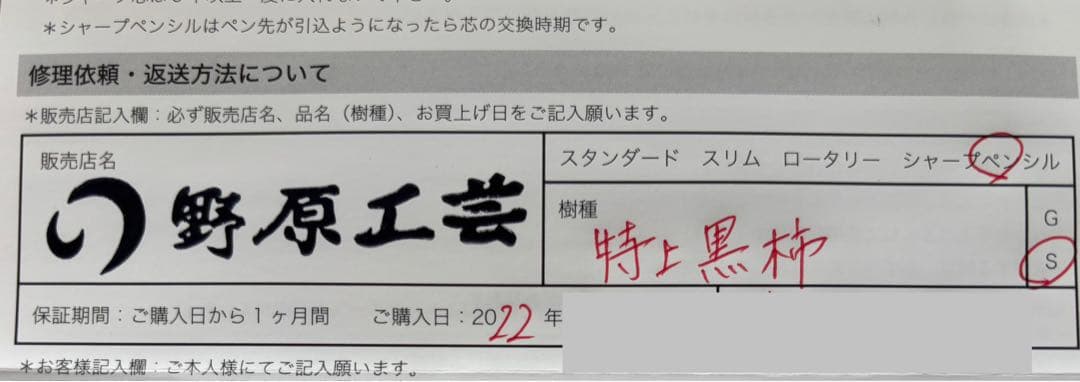 *シャープペンシルはペン先が引込ようになったら芯の交換時期です。
修理依頼・返送方法について
*販売店記入欄：必ず販売店名、品名（樹種）、お買上げ日をご記入願います。
販売店名
野原工芸
スタンダード スリム ロータリー シャープペンシル
樹種
特上黒柿
G
S
保証期間：ご購入日から1ヶ月間 ご購入日：2022年
*お客様記入欄：ご本人様にてご記入願います。